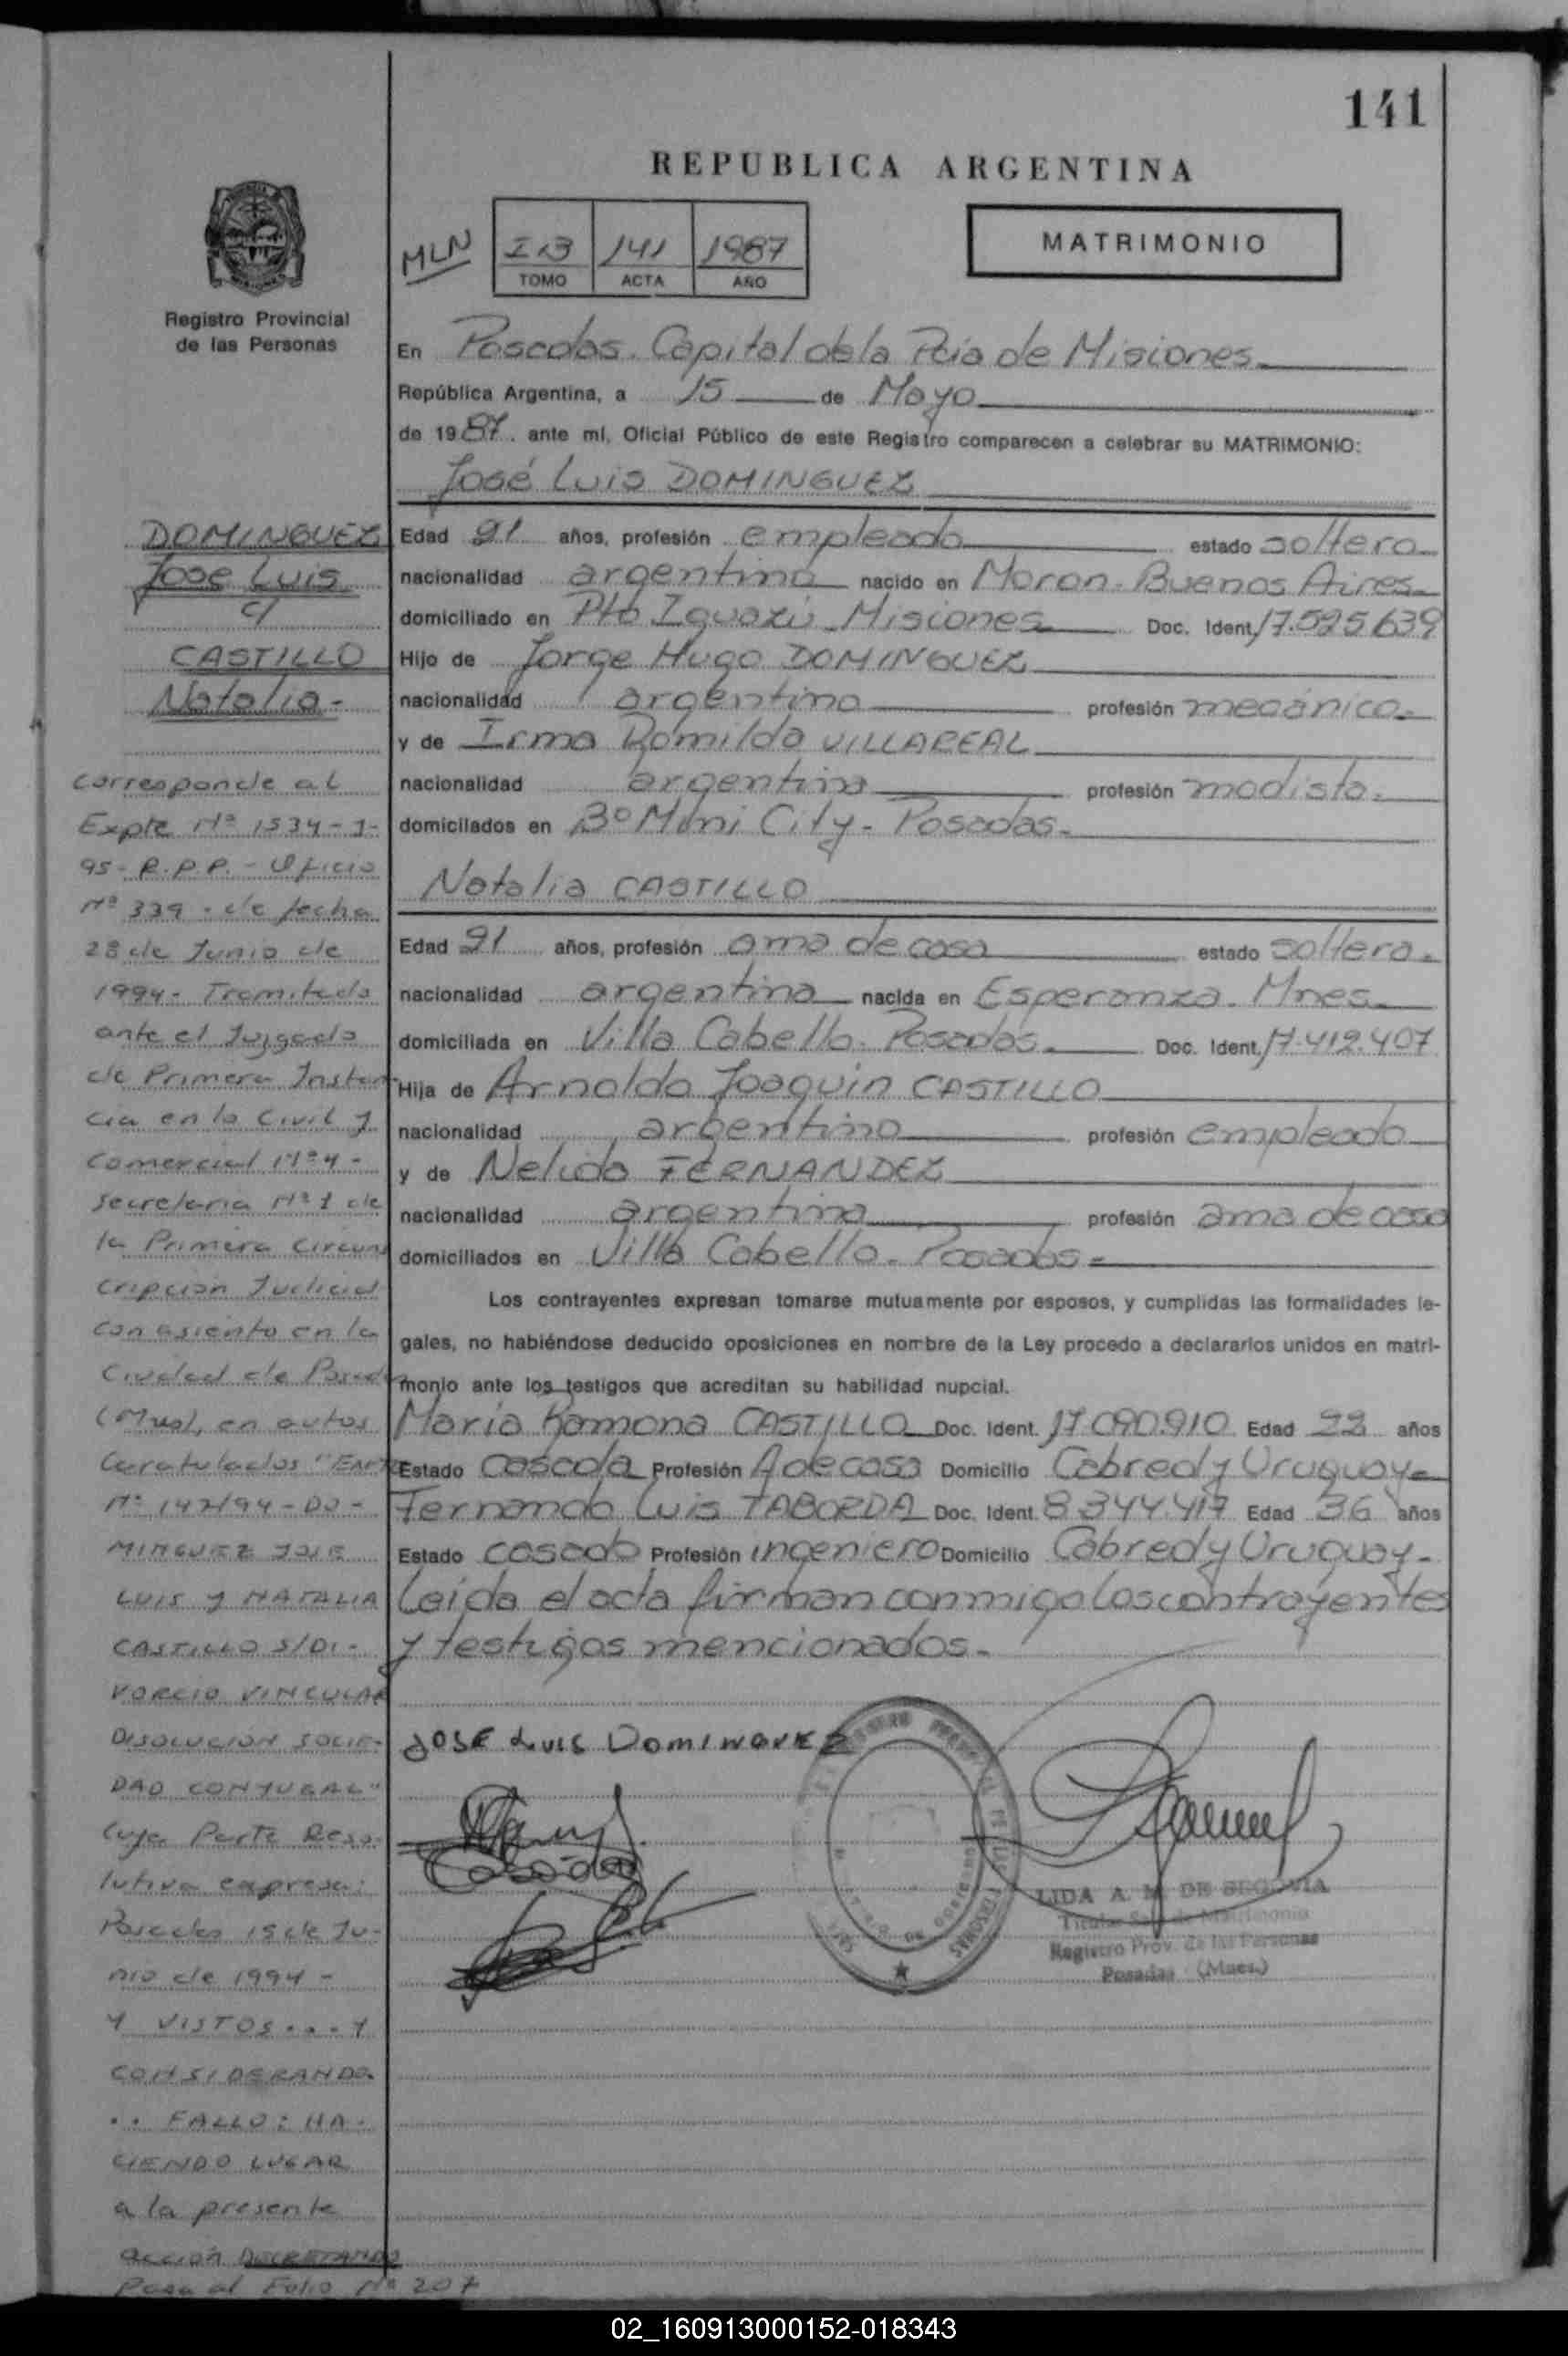 141
REPUBLICA ARGENTINA
MLN
I.B 141 1987
TOMO ACTA AÑO
MATRIMONIO
Registro Provincial
de las Personas
En Posadas. Capital de la Pcia de Misiones
República Argentina, a 15 de Mayo
de 1987. ante mí, Oficial Público de este Registro comparecen a celebrar su MATRIMONIO:
José Luis DOMINGUEZ
Edad 21 años, profesión empleado estado soltero
nacionalidad argentina nacido en Moron. Buenos Aires
domiciliado en Pto Iguazú. Misiones Doc. Ident. 17.525.639
Hijo de Jorge Hugo DOMINGUEZ
nacionalidad argentino profesión mecánico.
y de Irma Romilda VILLAREAL
nacionalidad argentina profesión modista.
domiciliados en B° Mini City - Posadas.
Natalia CASTILLO
Edad 21 años, profesión ama de casa estado soltera.
nacionalidad argentina nacida en Esperanza. Mnes.
domiciliada en Villa Cabello. Posadas. Doc. Ident. 17.412.407
Hija de Arnoldo Joaquin CASTILLO
nacionalidad argentino profesión empleado
y de Nelida FERNANDEZ
nacionalidad argentina profesión ama de casa
domiciliados en Villa Cabello. Posadas.
Los contrayentes expresan tomarse mutuamente por esposos, y cumplidas las formalidades le-
gales, no habiéndose deducido oposiciones en nombre de la Ley procedo a declararlos unidos en matri-
monio ante los testigos que acreditan su habilidad nupcial.
María Ramona CASTILLO Doc. Ident. 17.090.910 Edad 22 años
Estado casada Profesión A de casa Domicilio Cabred y Uruguay
Fernando Luis TABORDA Doc. Ident. 8.344.417 Edad 36 años
Estado casado Profesión ingeniero Domicilio Cabred y Uruguay.
Leida el acta firman conmigo los contrayentes
y testigos mencionados.
JOSE LUIS DOMINGUEZ
LIDA A. M. DE SEGOVIA
Titular Sala de Matrimonio
Registro Prov. de las Personas
Posadas (Mnes.)
DOMINGUEZ
Jose Luis
c/
CASTILLO
Natalia-
Corresponde al
Expte Nº 1534-J-
95- R.P.P. - Oficio
Nº 339 - de fecha
28 de Junio de
1994- Tramitado
ante el Juzgado
de Primera Instan
cia en lo Civil y
Comercial Nº 4 -
Secretaria Nº 1 de
la Primera Circuns
cripcion Judicial
con asiento en la
Ciudad de Posadas
(Mnes), en autos
Caratulados "EXPTE
Nº 147/94 - DO-
MINGUEZ JOSE
LUIS y NATALIA
CASTILLO S/DI-
VORCIO VINCULAR
DISOLUCION SOCIE-
DAD CONYUGAL"
Cuya Parte Reso-
lutiva expresa:
Posadas 15 de Ju-
nio de 1994 -
Y VISTOS...Y
CONSIDERANDO.
.. FALLO: HA-
CIENDO LUGAR
a la presente
acción DECRETANDO
Pasa al Folio Nº 207
02_160913000152-018343